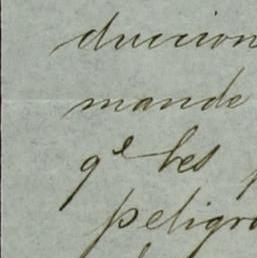 duccion
mande
qe les
peligro